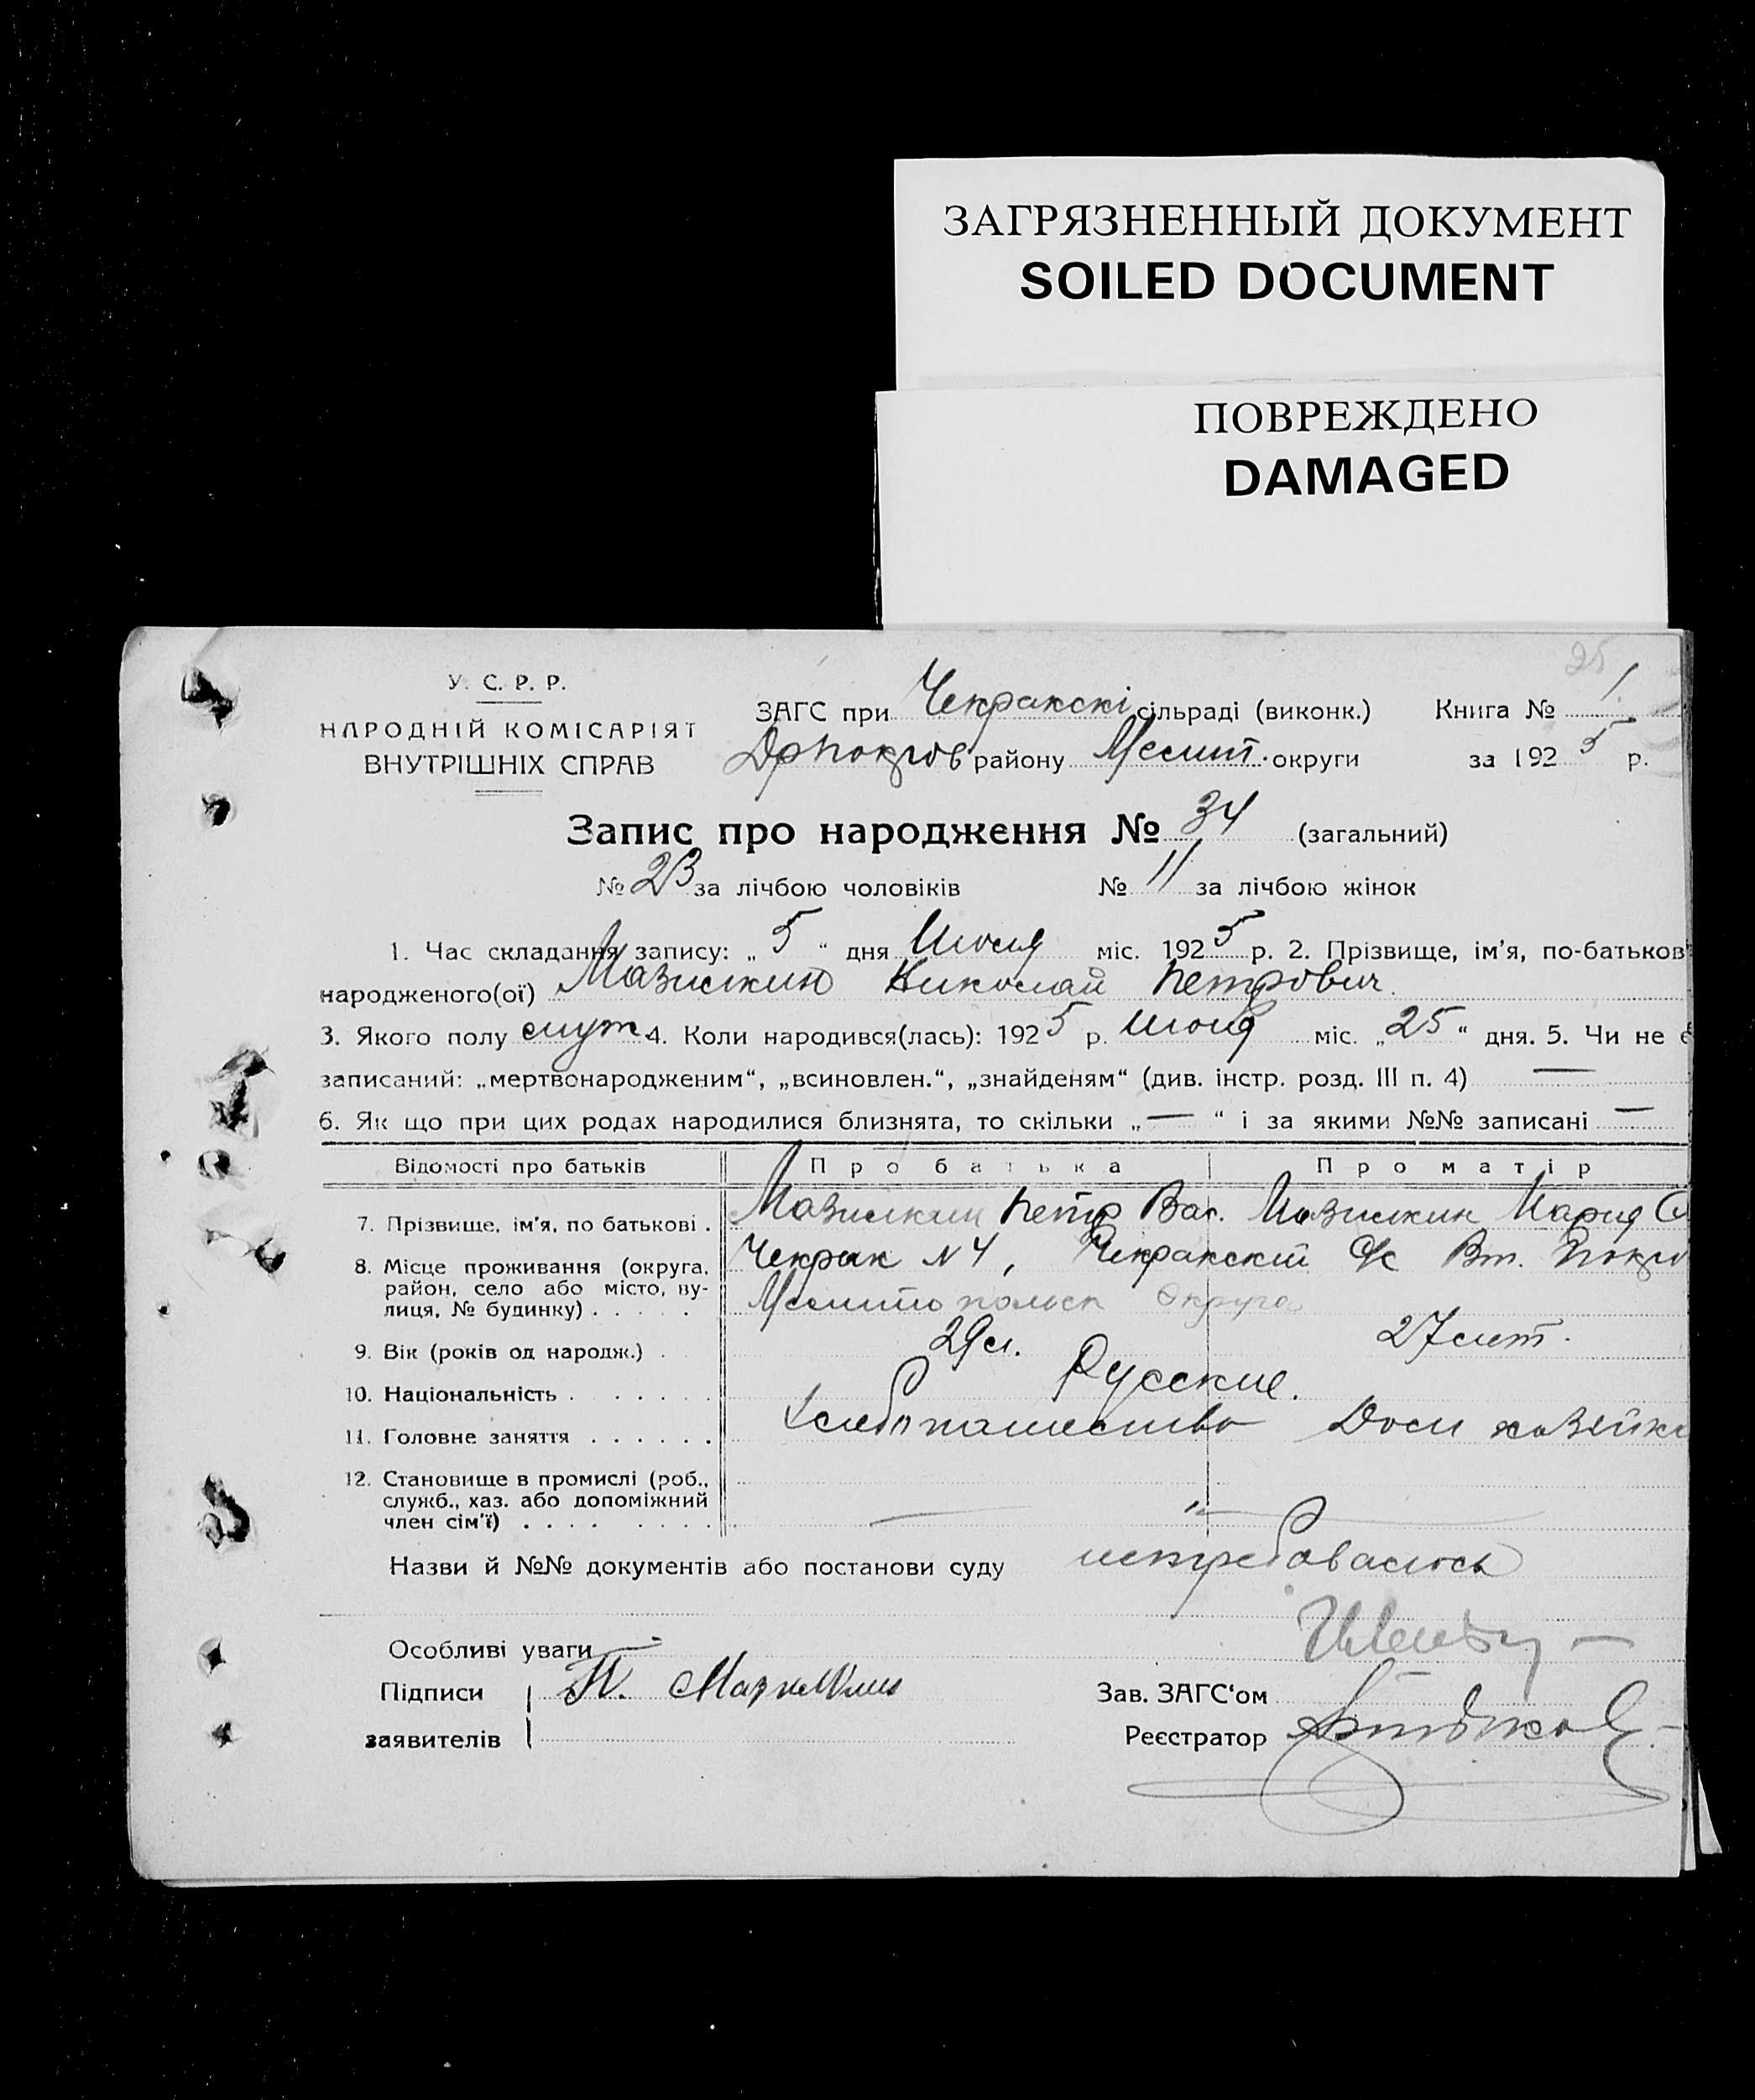 ЗАГРЯЗНЕННЫЙ ДОКУМЕНТ
SOILED DOCUMENT
ПОВРЕЖДЕНО
DAMAGED
25
У. С. Р. Р.
НАРОДНІЙ КОМІСАРІЯТ
ВНУТРІШНІХ СПРАВ
ЗАГС при Чекракскі сільраді (виконк.) Книга № 1
району Мелит. округи за 1925 р.
Запис про народження № 34 (загальний)
№ 23 за лічбою чоловіків № 11 за лічбою жінок
1. Час складання запису: „5“ дня Июля міс. 1925 р. 2. Прізвище, ім'я, по-батьков
народженого(ої) Мазилкин Николай Петрович.
3. Якого полу муж 4. Коли народився(лась): 1925 р. міс. „25“ дня. 5. Чи не є
записаний: „мертвонародженим“, „всиновлен.“, „знайденям“ (див. інстр. розд. III п. 4) —
6. Як що при цих родах народилися близнята, то скільки „—“ і за якими №№ записані —
Відомості про батьків Про батька Про матір
7. Прізвище, ім'я, по батькові . Мазилкин Петр Вас. Мазилкин Мария С
8. Місце проживання (округа, район, село або місто, вулиця, № будинку) . . . . . Чекрак N 4, Чекракский с/с Вт. Покро
Мелитопольск Округа
9. Вік (років од народж.) . 29 л. 27 лет.
10. Національність . . . . . . Русские.
11. Головне заняття . . . . . . Хлебопашество Дом хозяйка
12. Становище в промислі (роб., служб., хаз. або допоміжний член сім'ї) . . . . . . . . — " —
Назви й №№ документів або постанови суду нетребовалось
Особливі уваги —
Підписи П. Мазилкин Зав. ЗАГС‘ом
заявителів Реєстратор